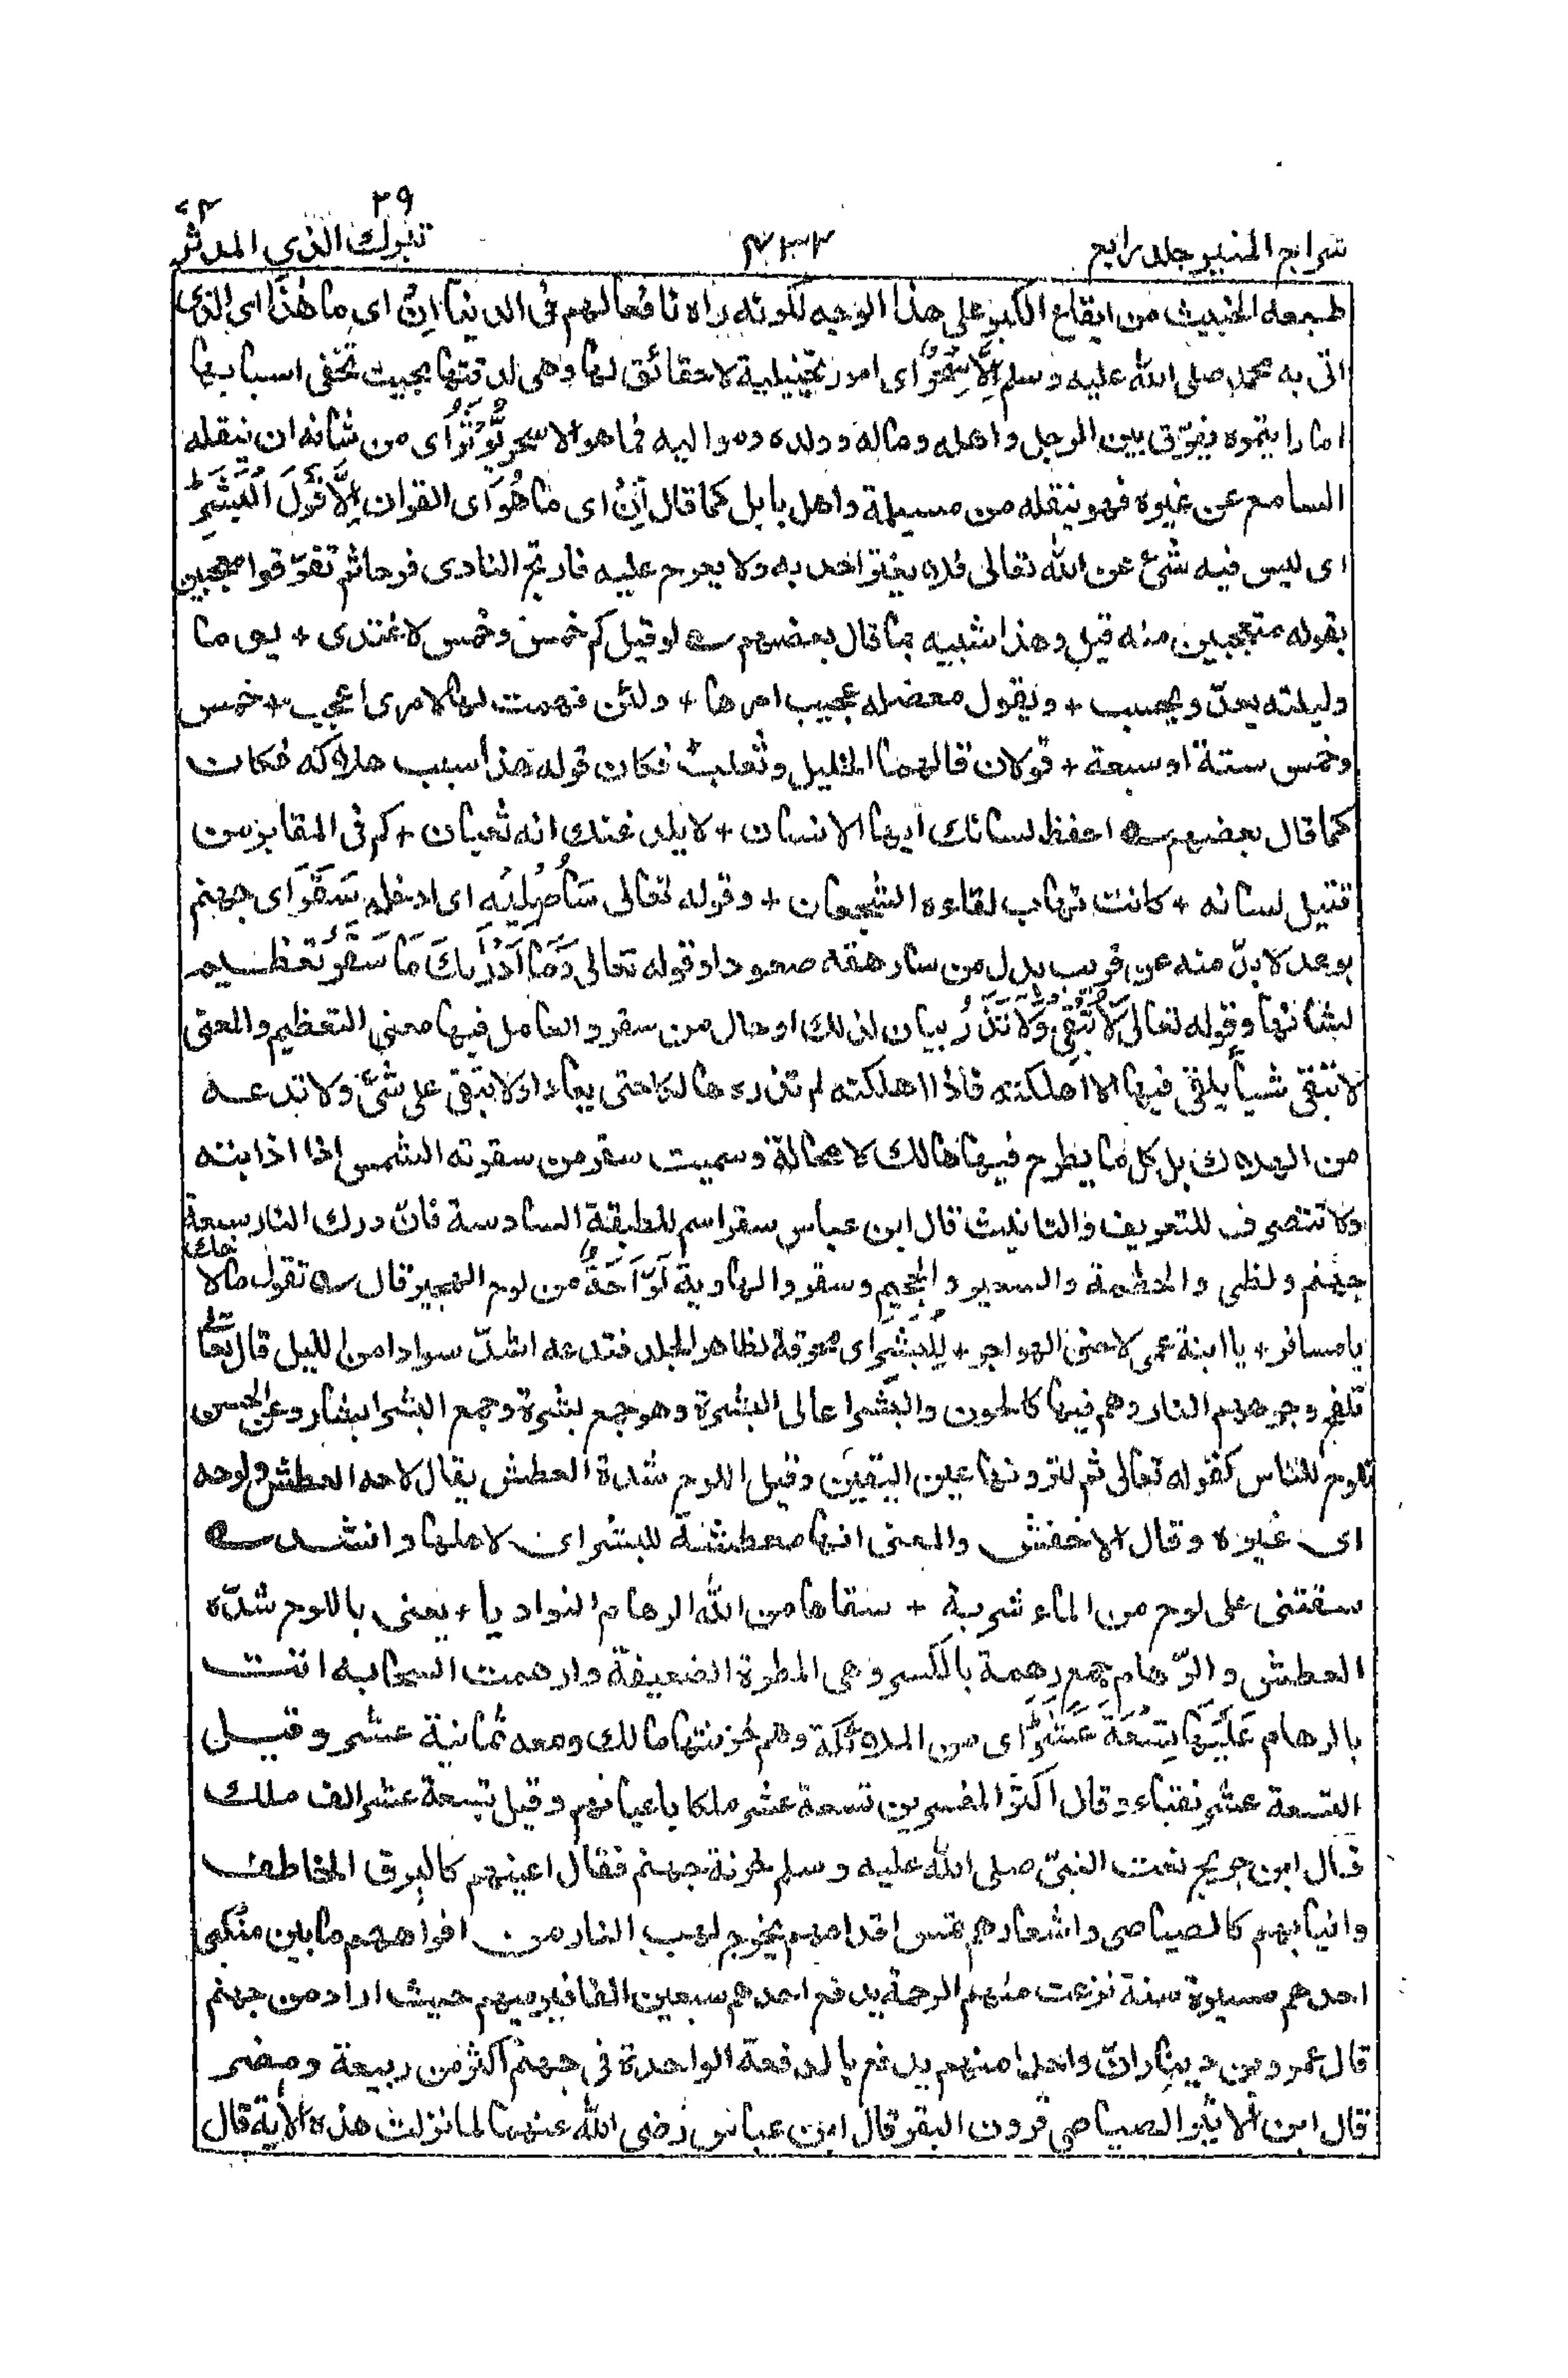 ٢٩ ٧٤
سراج المنير جلد رابع ٤٣٣ تبرك الذى المدثر
طبعه الخبيث من ايقاع الكبر على هذا الوجه لكونه راه نافعا لهم فى الدنيا اِنْ اى ما هٰذَا اى الذى
اتى به محمد صلى الله عليه وسلم اِلَّا سِحْرٌ اى امور تخييلية لا حقائق لها وهى لدقتها بحيث تخفى اسبابها
اما رايتموه يفرّق بين الرجل واهله وماله وولده ومواليه فما هو الا سحر يُؤْثَرُ اى من شانه ان ينقله
السامع عن غيره فهو ينقله من مسيلمة واهل بابل كما قال اِنْ اى ما هُوَ اى القران اِلَّا قَوْلُ الْبَشَرِ
اى ليس فيه شئ عن الله تعالى فلا يغتر احد به ولا يعرج عليه فارتج النادى فرحا ثم تفرّقوا معجبين
بقوله متعجبين منه قيل وهذا شبيه بما قال بعضهم ؎ لو قيل كم خمس وخمس لاغتدى + يوما
وليلته يعدّ ويحسب + ويقول معضلة عجيب امرها + ولئن فهمت لها لامرى اعجب + خمس
وخمس ستة او سبعة + قولان قالهما الخليل وثعلب فكان قوله هذا سبب هلاكه فكان
كما قال بعضهم ؎ احفظ لسانك ايها الانسان + لا يلدغنك انه ثعبان + كم فى المقابر من
قتيل لسانه + كانت تهاب لقاءه الشجعان + وقوله تعالى سَاُصْلِيْهِ اى ادخله سَقَرَ اى جهنم
بوعد لا بدّ منه عن قريب بدل من سارهقه صعودا وقوله تعالى وَمَا اَدْرٰىكَ مَا سَقَرُ تعظيم
لشانها وقوله تعالى لَا تُبْقِىْ وَلَا تَذَرُ بيان لذلك او حال من سقر والعامل فيها معنى التعظيم والمعنى
لا تبقى شيأ يلقى فيها الا اهلكته فاذا اهلكته لم تذره هالكا حتى يعاد او لا تبقى على شئ ولا تدعه
من الهلاك بل كل ما يطرح فيها هالك لا محالة وسميت سقر من سقرته الشمس اذا اذابته
ولا تنصرف للتعريف والتانيث قال ابن عباس سقر اسم للطبقة السادسة فانّ درك النار سبعة
جهنم ولظى والحطمة والسعير والجحيم وسقر والهاوية لَوَّاحَةٌ من لوح الهجير قال ؎ تقول ما لاحك
يا مسافر + يا ابنة عمى لاحنى الهواجر + لِلْبَشَرِ اى محرقة لظاهر الجلد فتدعه اشدّ سوادا من الليل قال تعالى
تلفح وجوههم النار وهم فيها كالحون والبشر اعالى البشرة وهو جمع بشرة وجمع البشر ابشار وعن الحسن
تلوح للناس كقوله تعالى ثم لترونها عين اليقين وقيل اللوح شدة العطش يقال لاحه العطش ولوحه
اى غيره وقال الاخفش والمعنى انها معطشة للبشر اى لاهلها وانشد ؎
سقتنى على لوح من الماء شربة + سقاها من الله الرهام الغواديا + يعنى باللوح شدّه
العطش والرّهام جمع رهمة بالكسر وهى المطرة الضعيفة وارهمت السحابه اتت
بالرهام عَلَيْهَا تِسْعَةَ عَشَرَ اى من الملائكة وهم خزنتها مالك ومعه ثمانية عشر وقيل
التسعة عشر نقباء وقال اكثر المفسرين تسعة عشر ملكا باعيانهم وقيل تسعة عشر الف ملك
قال ابن جريج نعت النبىّ صلى الله عليه وسلم خزنة جهنم فقال اعينهم كالبرق الخاطف
وانيابهم كالصياصى واشعارهم تمس اقدامهم يخرج لهب النار من افواههم ما بين منكبى
احدهم مسيرة سنة نزعت منهم الرحمة يدفع احدهم سبعين الفا فيرميهم حيث اراد من جهنم
قال عمرو بن دينار انّ واحدا منهم يدفع بالدفعة الواحدة فى جهنم اكثر من ربيعة ومضر
قال ابن الاثير الصياصى قرون البقر قال ابن عباس رضى الله عنهما لما نزلت هذه الأية قال